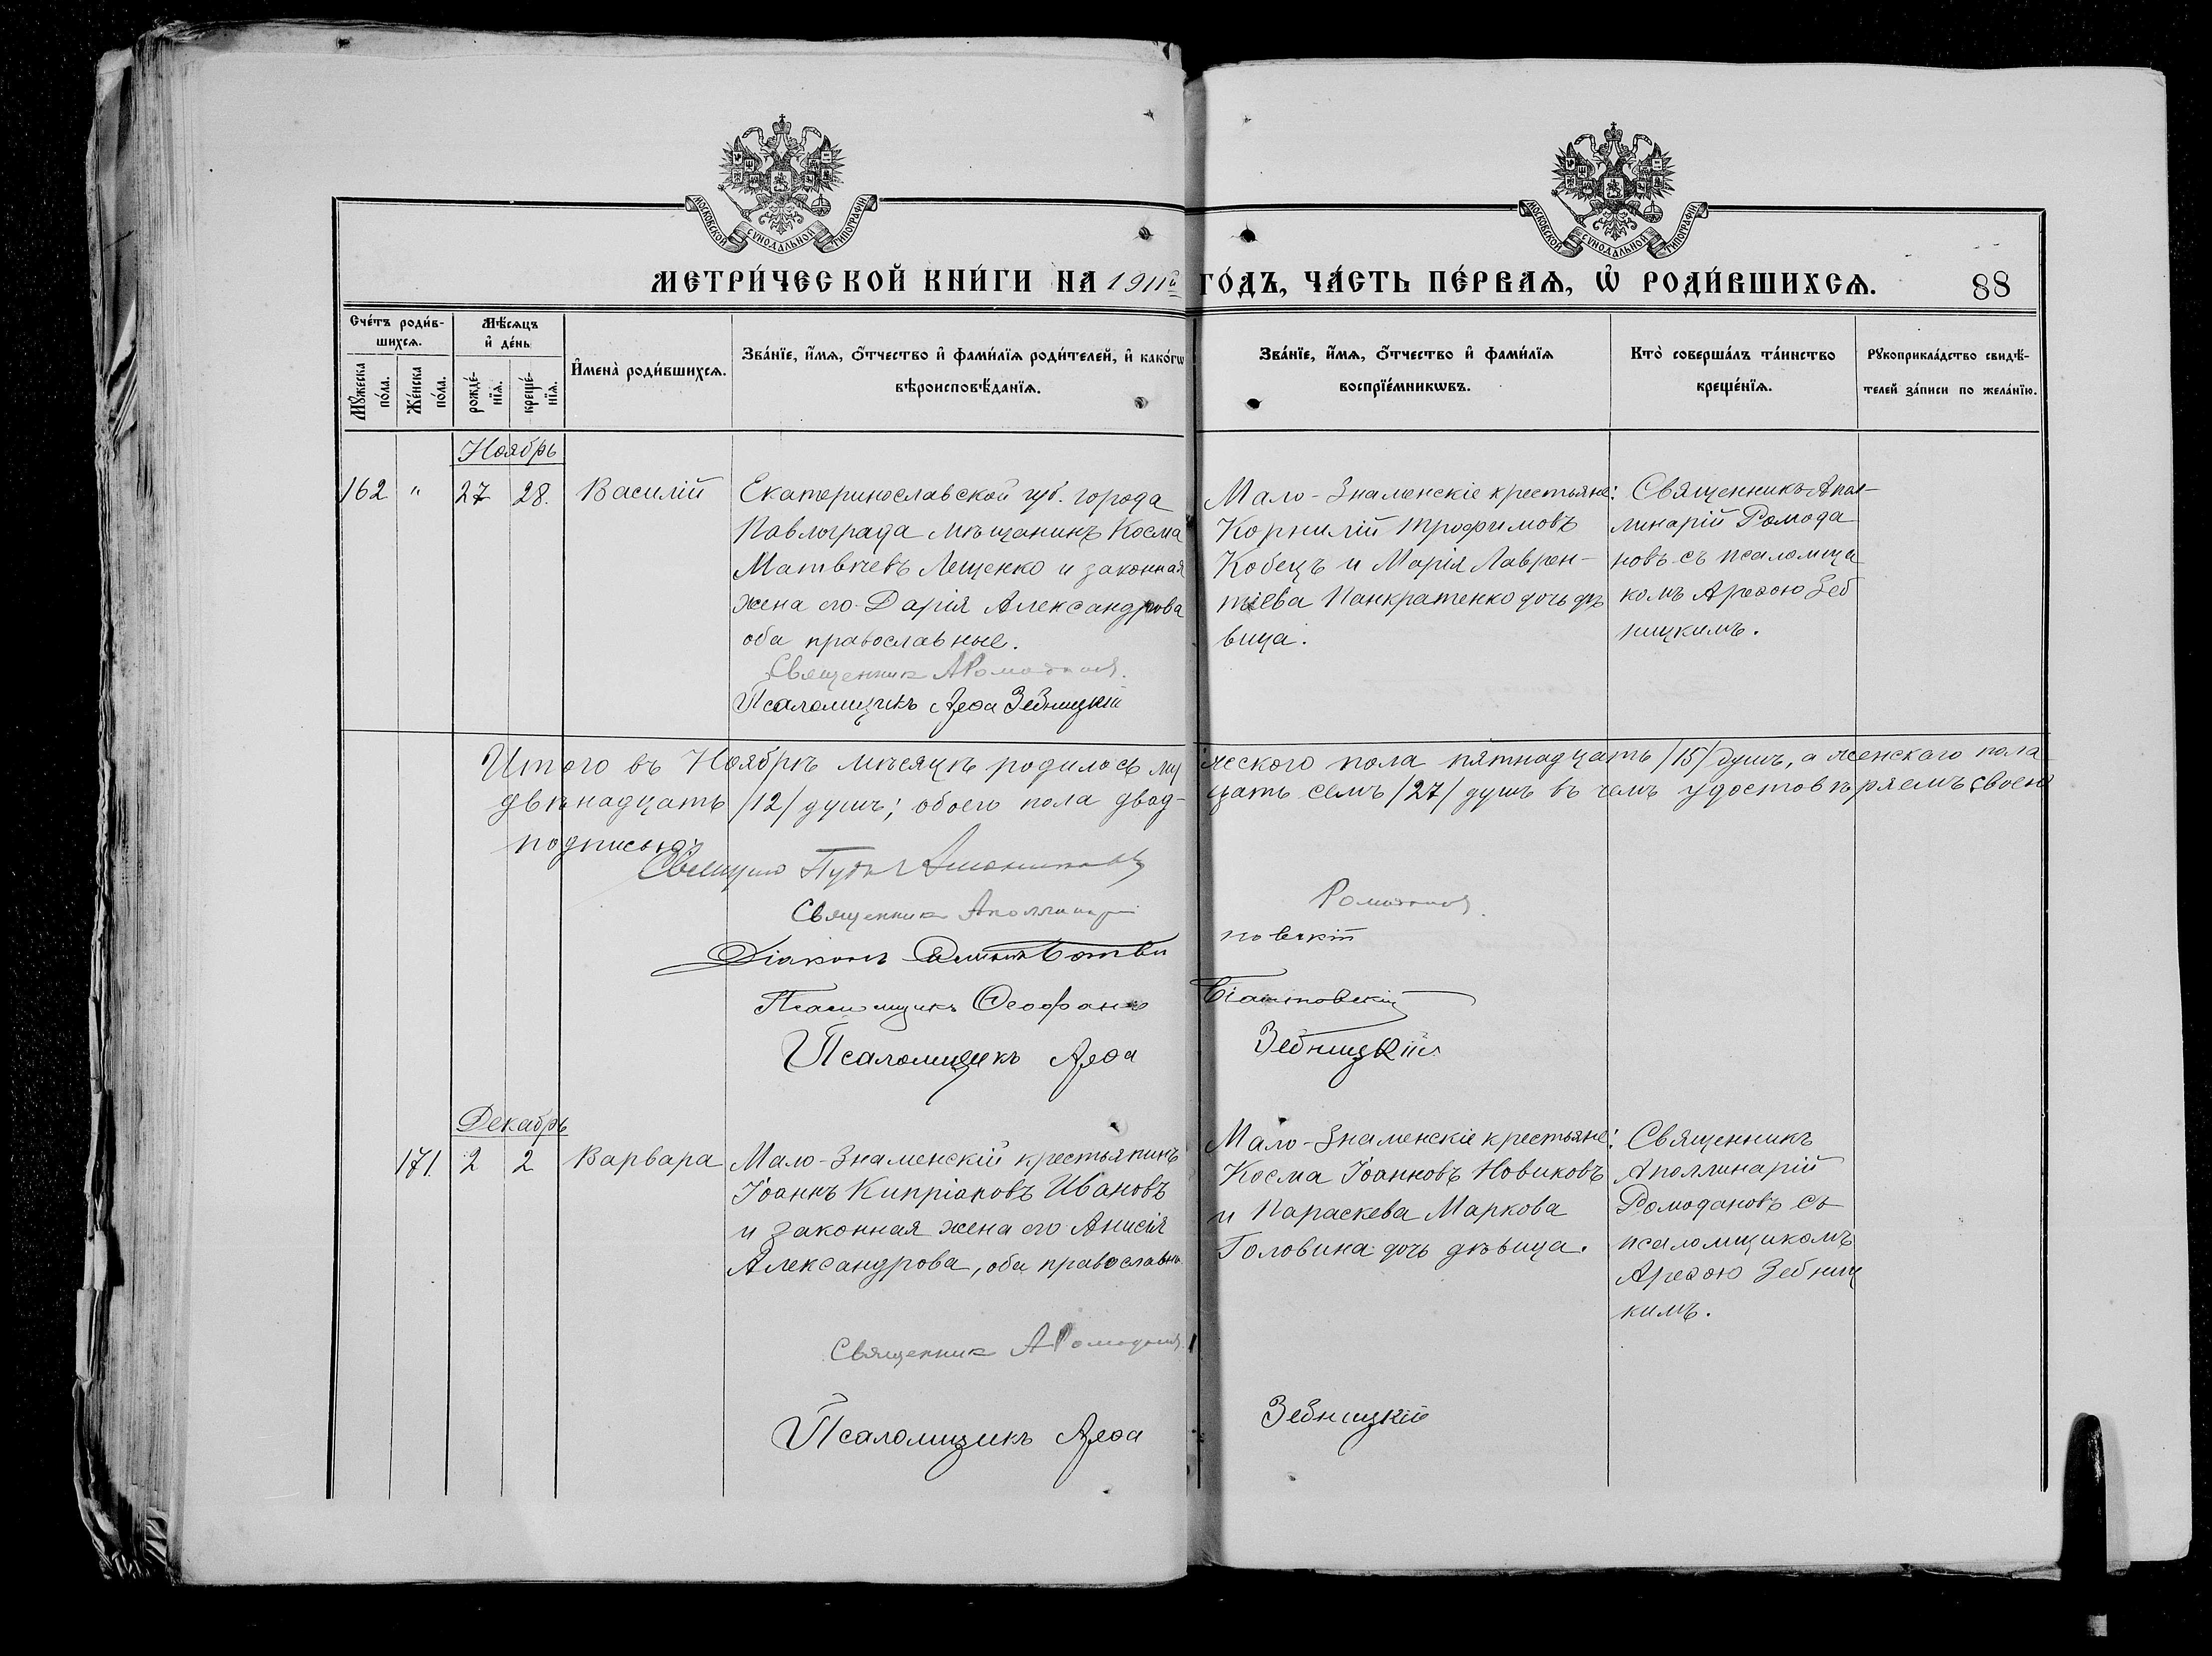 МОСКОВСКОЙ СѴНОДАЛЬНОЙ ТИПОГРАФІИ
МОСКОВСКОЙ СѴНОДАЛЬНОЙ ТИПОГРАФІИ
МЕТРИ́ЧЕСКОЙ КНИ́ГИ НА 1911й ГО́ДЪ, ЧА́СТЬ ПЕ́РВАѦ, Ѡ РОДИ́ВШИХСѦ.
88
Сче́тъ роди́в-
шихсѧ.
Мꙋ́жеска по́ла.
Же́нска по́ла.
Мѣ́сѧцъ
и҆ де́нь
рожде́-
нїѧ.
креще́-
нїѧ.
И҆мена̀ роди́вшихсѧ.
Зва́нїе, и҆́мѧ, ѻ҆́тчество и҆ фами́лїѧ роди́телей, и҆ како́гѡ
вѣроисповѣ́данїѧ.
Зва́нїе, и҆́мѧ, ѻ҆́тчество и҆ фами́лїѧ
воспрїе́мникѡвъ.
Кто̀ соверша́лъ та́инство
креще́нїѧ.
Рꙋкоприкла́дство свидѣ́-
телей за́писи по жела́нїю.
Ноябрь
162 " 27 28. Василій
Екатеринославской губ. города
Павлограда мѣщанинъ Косма
Матвѣевъ Лещенко и законная
жена его Дарія Александрова
оба православные.
Священник АРомоданов
Псаломщикъ Арефа Зебницкій
Мало-Знаменскіе крестьяне:
Корнилій Трофимовъ
Кобецъ и Марія Лаврен-
тіева Панкратенко дочь дѣ
вица.
Священникъ Апол-
линарій Ромода
новъ съ псаломщи
комъ Арефою Зеб
ницкимъ.
Итого въ Ноябрѣ мѣсяцѣ родилось му жеского пола пятнадцать /15/ душъ, а женскаго пола
двѣнадцать /12/ душъ; обоего пола двад- цать семь /27/ душъ въ чемъ удостовѣряемъ своею
подписью:
Священник Аполлинарій Ромоданов
Діаконъ новскій
Псаломщикъ Феофанъ
Псаломщикъ Арефа Зебницкій
Декабрь
171. 2 2 Варвара
Мало-Знаменскій крестьянинъ
Іоаннъ Кипріановъ Ивановъ
и законная жена его Анисія
Александрова, оба православны
Священник АРомоданов
Псаломщикъ Арефа Зебницкій
Мало-Знаменскіе крестьяне:
Косма Іоанновъ Новиковъ
и Параскева Маркова
Головина дочь дѣвица.
Священникъ
Аполлинарій
Ромодановъ съ
псаломщикомъ
Арефою Зебниц
кимъ.